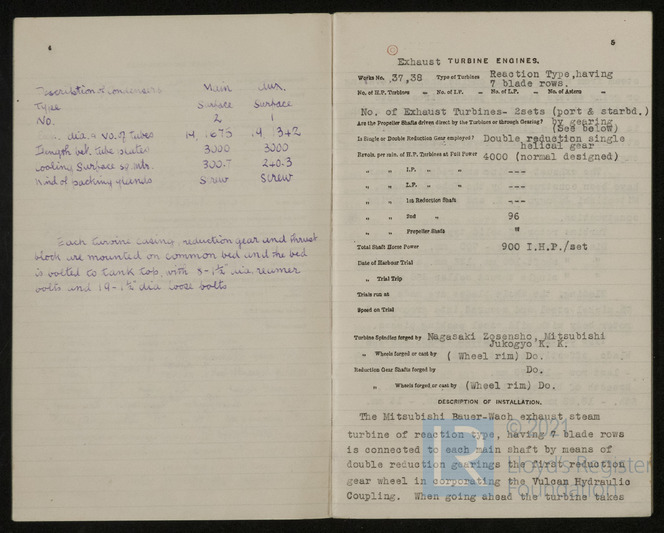 4
Description of Condensers Main Aux.
Type Surface Surface
No. 2 1
dia. & No. of tubes 19, 1675 19, 1342
Length bet. tube plates 3000 3000
Cooling Surface sq. mtr. 300.7 240.3
Kind of packing glands Screw Screw
Each turbine casing, reduction gear and thrust
block are mounted on common bed and the bed
is bolted to tank top, with 8-1½" dia. reamer
bolts and 19-1½" dia loose bolts
5
Exhaust TURBINE ENGINES.
Works No. 37,38 Type of Turbines Reaction Type, having
7 blade rows.
No. of H.P. Turbines „ No. of I.P. „ No. of L.P. „ No. of Astern „
No. of Exhaust Turbines- 2sets (port & starbd.)
Are the Propeller Shafts driven direct by the Turbines or through Gearing? by gearing
(See below)
Is Single or Double Reduction Gear employed? Double reduction single
helical gear
Revols. per min. of H.P. Turbines at Full Power 4000 (normal designed)
„ „ I.P. „ „ ----
„ „ L.P. „ „ ----
„ „ 1st Reduction Shaft ----
„ „ 2nd „ 96
„ „ Propeller Shaft "
Total Shaft Horse Power 900 I.H.P./set
Date of Harbour Trial
„ Trial Trip
Trials run at
Speed on Trial
Turbine Spindles forged by Nagasaki Zosensho, Mitsubishi
Jukogyo K. K.
„ Wheels forged or cast by ( Wheel rim) Do.
Reduction Gear Shafts forged by Do.
„ Wheels forged or cast by (Wheel rim) Do.
DESCRIPTION OF INSTALLATION.
The Mitsubishi Bauer-Wach exhaust steam
turbine of reaction type, having 7 blade rows
is connected to each main shaft by means of
double reduction gearings the first reduction
gear wheel in corporating the Vulcan Hydraulic
Coupling. When going ahead the turbine takes
LR © 2021
Lloyd's Register
Foundation